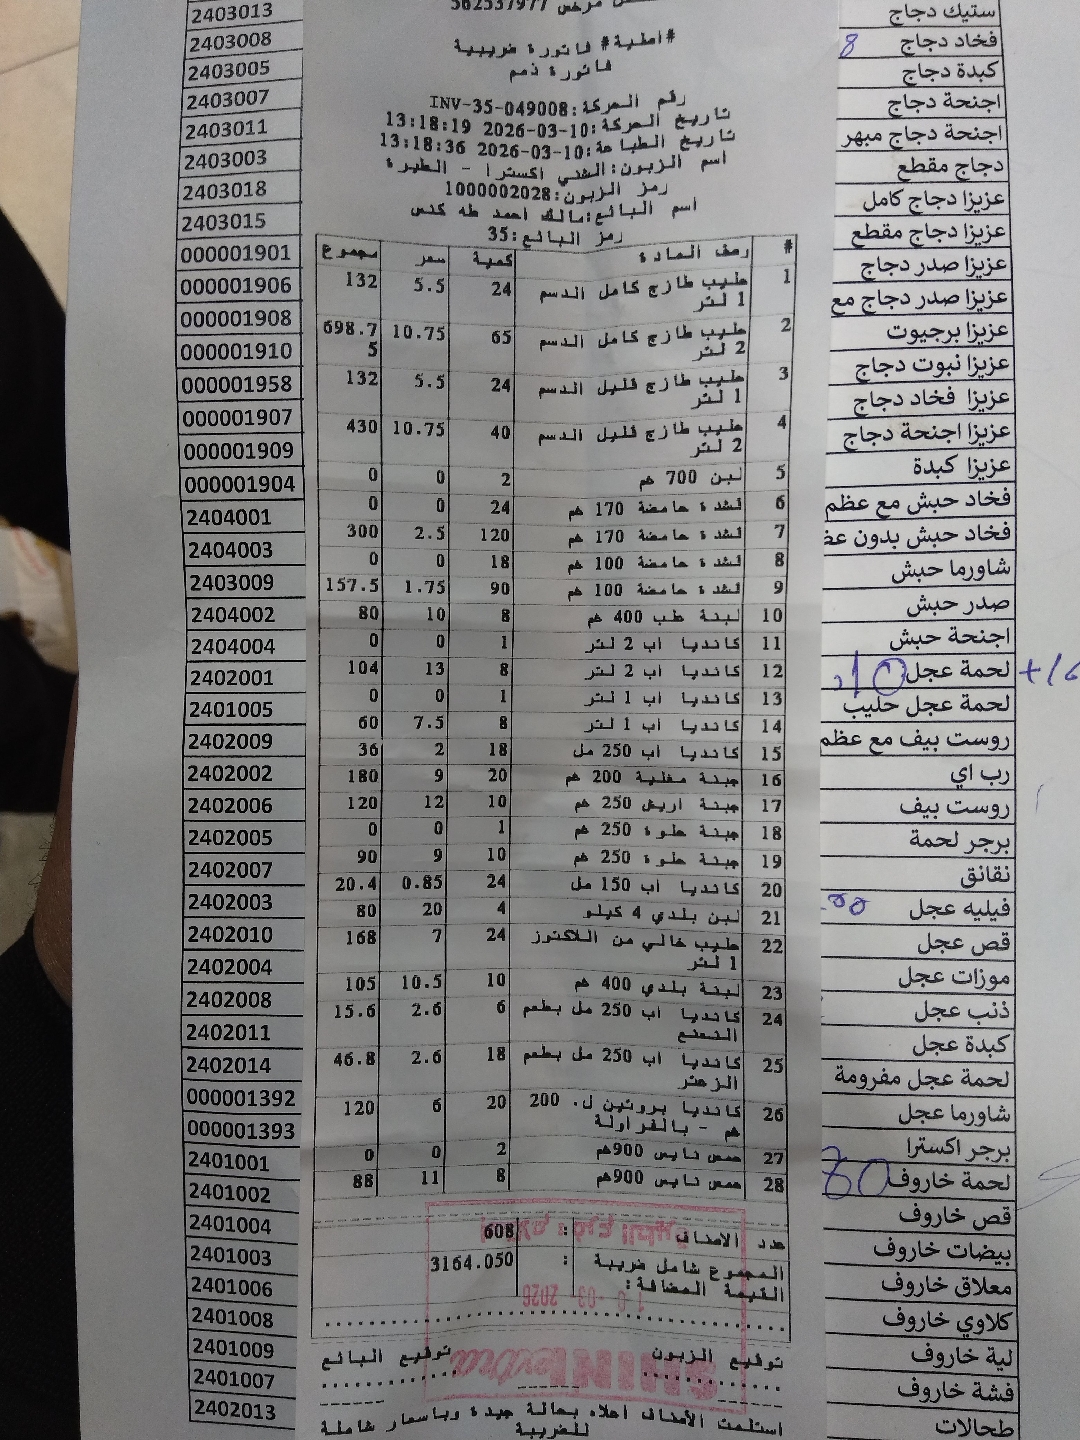 #أصلية# فاتورة ضريبية
فاتورة ذمم
رقم الحركة:INV-35-049008
تاريخ الحركة:10-03-2026 13:18:19
تاريخ الطباعة:10-03-2026 13:18:36
اسم الزبون:الشني اكسترا - الطيرة
رمز الزبون:1000002028
اسم البائع:مالك احمد طه كنس
رمز البائع:35
# وصف المادة كمية سعر مجموع
1 حليب طازج كامل الدسم 1 لتر 24 5.5 132
2 حليب طازج كامل الدسم 2 لتر 65 10.75 698.75
3 حليب طازج قليل الدسم 1 لتر 24 5.5 132
4 حليب طازج قليل الدسم 2 لتر 40 10.75 430
5 لبن 700 غم 2 0 0
6 قشدة حامضة 170 غم 24 0 0
7 قشدة حامضة 170 غم 120 2.5 300
8 قشدة حامضة 100 غم 18 0 0
9 قشدة حامضة 100 غم 90 1.75 157.5
10 لبنة علب 400 غم 8 10 80
11 كانديا اب 2 لتر 1 0 0
12 كانديا اب 2 لتر 8 13 104
13 كانديا اب 1 لتر 1 0 0
14 كانديا اب 1 لتر 8 7.5 60
15 كانديا اب 250 مل 18 2 36
16 جبنة مغلية 200 غم 20 9 180
17 جبنة اريش 250 غم 10 12 120
18 جبنة حلوة 250 غم 1 0 0
19 جبنة حلوة 250 غم 10 9 90
20 كانديا اب 150 مل 24 0.85 20.4
21 لبن بلدي 4 كيلو 4 20 80
22 حليب خالي من اللاكتوز 1 لتر 24 7 168
23 لبنة بلدي 400 غم 10 10.5 105
24 كانديا اب 250 مل بطعم النعنع 6 2.6 15.6
25 كانديا اب 250 مل بطعم الزعتر 18 2.6 46.8
26 كانديا بروتين ل. 200 غم - بالفراولة 20 6 120
27 حمص نايس 900غم 2 0 0
28 حمص نايس 900غم 8 11 88
عدد الاصناف : 608
المجموع شامل ضريبة القيمة المضافة: : 3164.050
توقيع الزبون توقيع البائع
استلمت الأصناف اعلاه بحالة جيدة وباسعار شاملة
للضريبة
10-03-2026
2403013
2403008
2403005
2403007
2403011
2403003
2403018
2403015
000001901
000001906
000001908
000001910
000001958
000001907
000001909
000001904
2404001
2404003
2403009
2404002
2404004
2402001
2401005
2402009
2402002
2402006
2402005
2402007
2402003
2402010
2402004
2402008
2402011
2402014
000001392
000001393
2401001
2401002
2401004
2401003
2401006
2401008
2401009
2401007
2402013
ستيك دجاج
فخاد دجاج 8
كبدة دجاج
اجنحة دجاج
اجنحة دجاج مبهر
دجاج مقطع
عزيزا دجاج كامل
عزيزا دجاج مقطع
عزيزا صدر دجاج
عزيزا صدر دجاج مع
عزيزا برجيوت
عزيزا نبوت دجاج
عزيزا فخاد دجاج
عزيزا اجنحة دجاج
عزيزا كبدة
فخاد حبش مع عظم
فخاد حبش بدون
شاورما حبش
صدر حبش
اجنحة حبش
لحمة عجل
لحمة عجل حليب
روست بيف مع عظم
رب اي
روست بيف
برجر لحمة
نقانق
فيليه عجل
قص عجل
موزات عجل
ذنب عجل
كبدة عجل
لحمة عجل مفرومة
شاورما عجل
برجر اكسترا
لحمة خاروف
قص خاروف
بيضات خاروف
معلاق خاروف
كلاوي خاروف
لية خاروف
فشة خاروف
طحالات